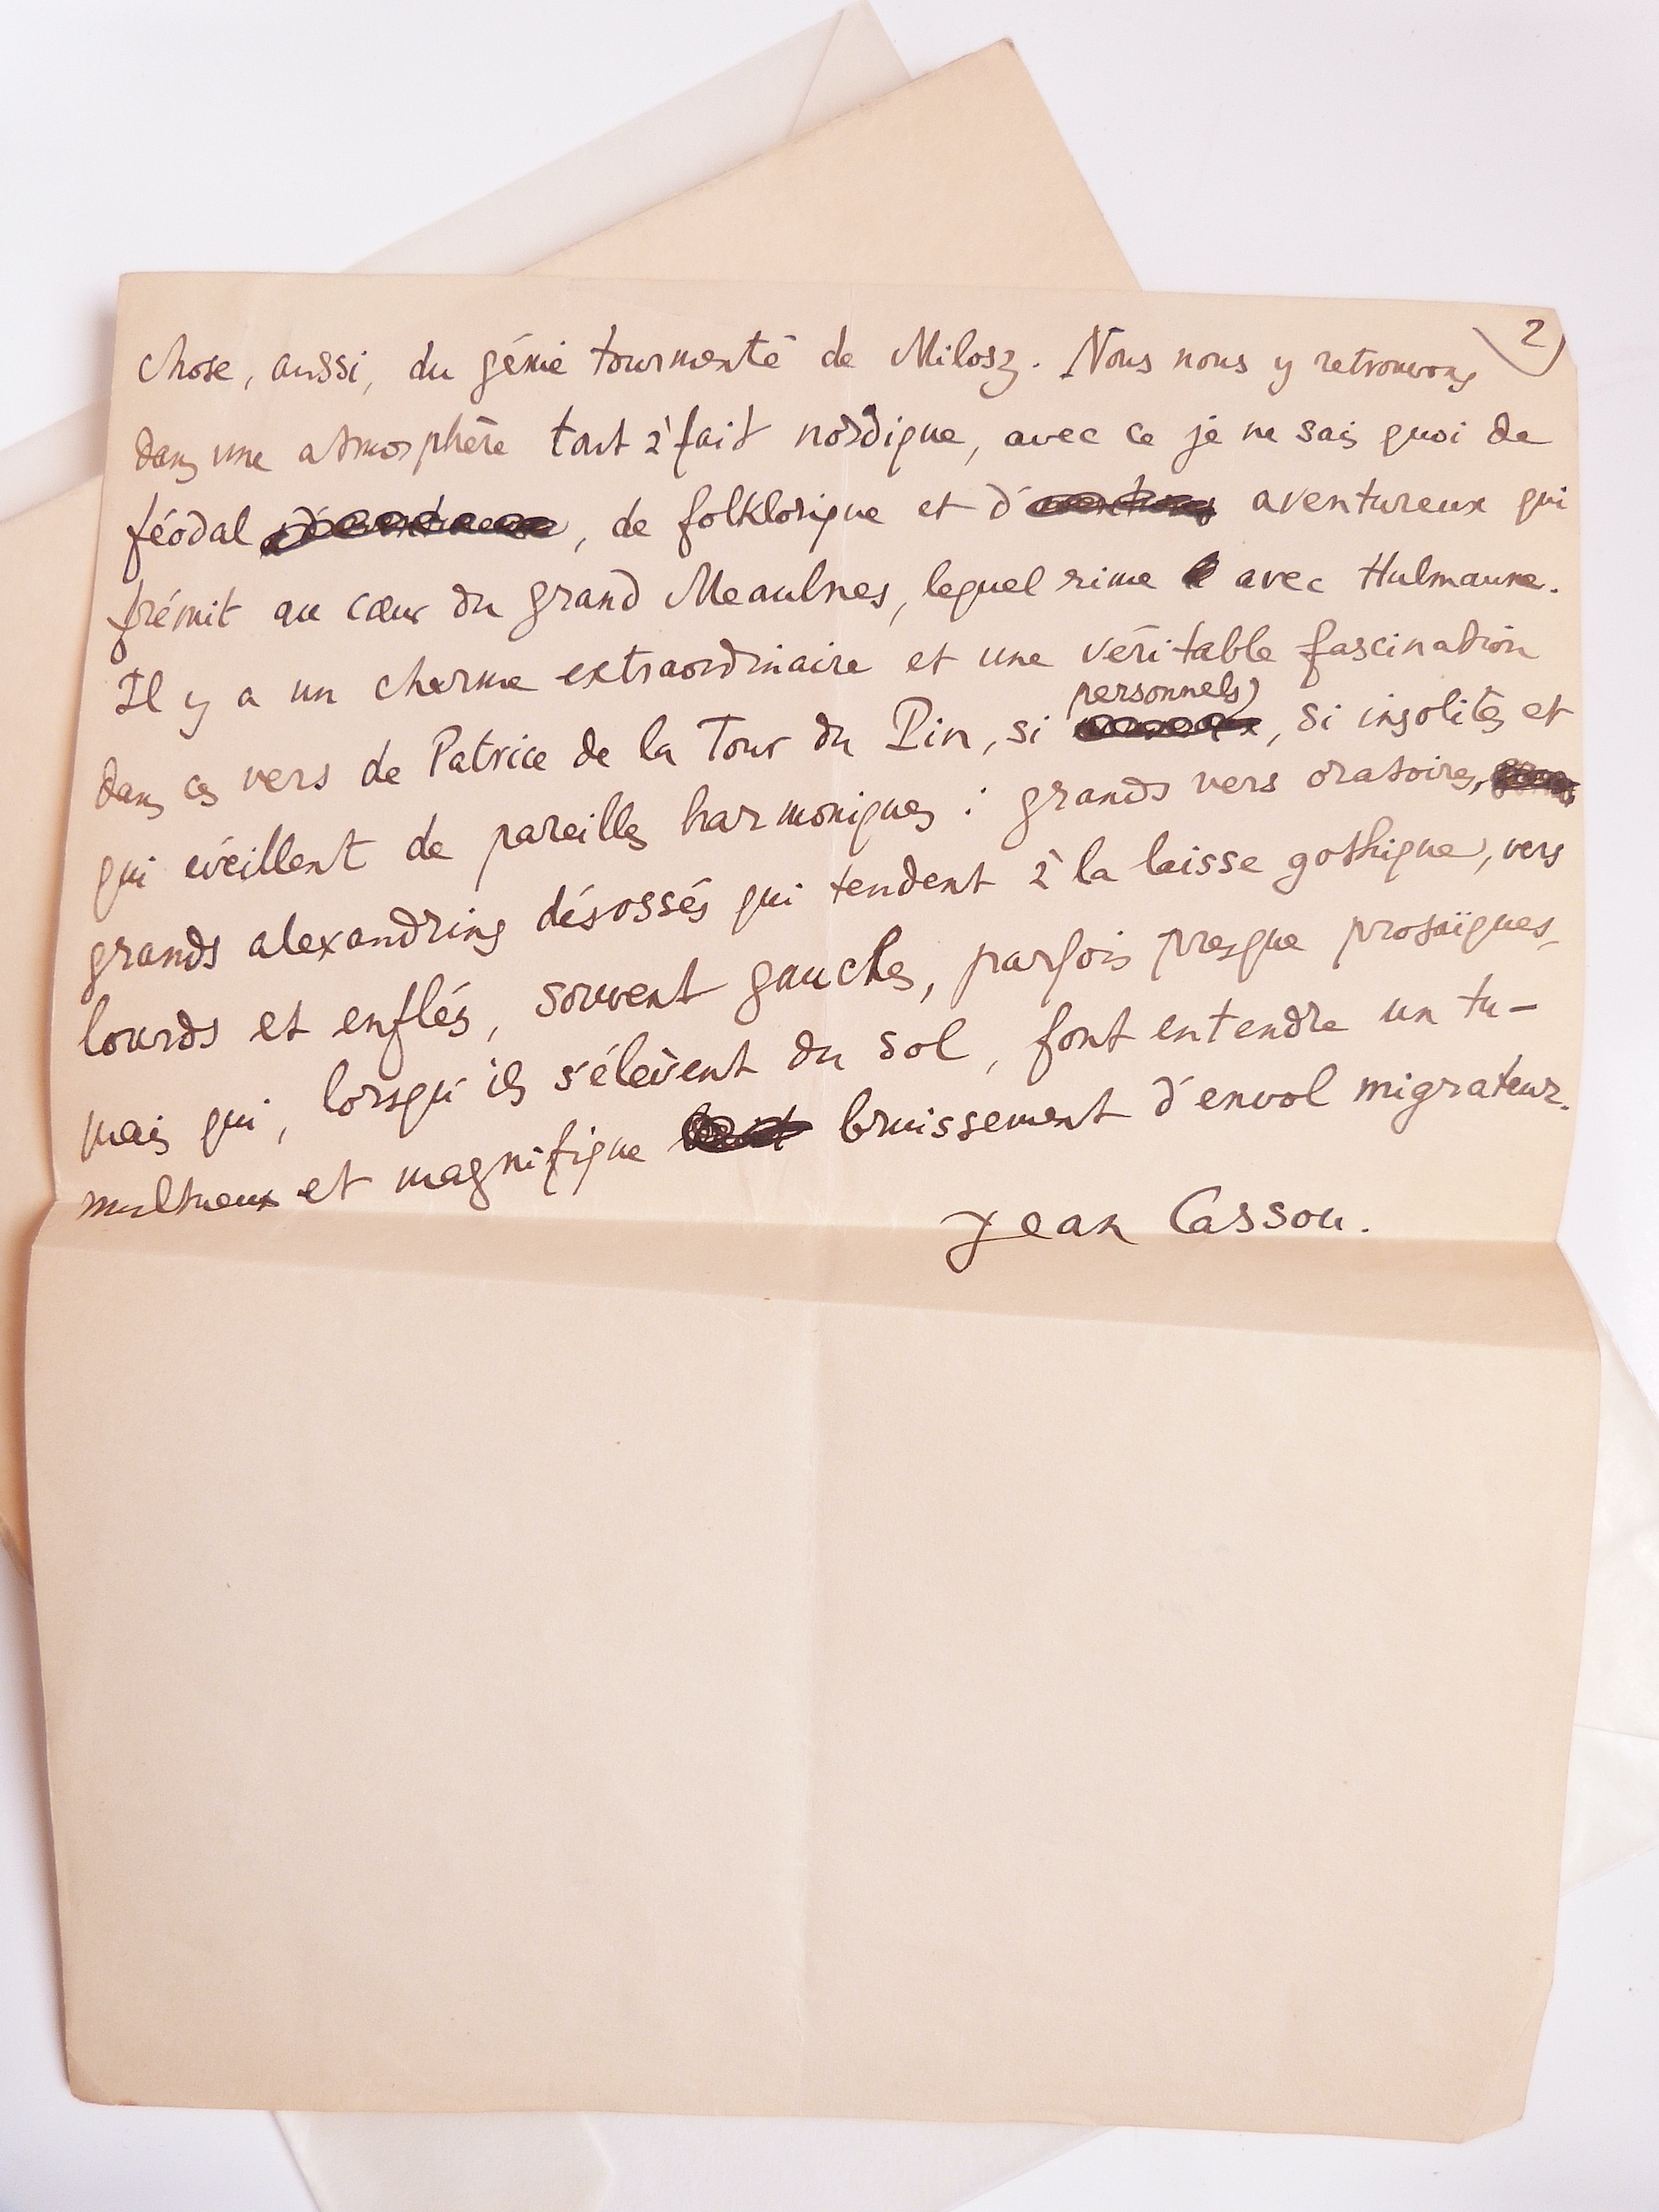 2
chose, aussi, du génie tourmenté de Milosz. Nous nous y retrouvons
dans une atmosphère tout à fait nordique, avec ce je ne sais quoi de
féodal, de folklorique et d' aventureux qui
frémit au cœur du grand Meaulnes, lequel rime avec Hulmaune.
Il y a un charme extraordinaire et une véritable fascination
dans ces vers de Patrice de la Tour du Pin, si personnels, si insolites et
qui éveillent de pareilles harmoniques : grands vers oratoires,
grands alexandrins désossés qui tendent à la laisse gothique, vers
lourds et enflés, souvent gauches, parfois presque prosaïques,
mais qui, lorsqu'ils s'élèvent du sol, font entendre un tu-
multueux et magnifique bruissement d'envol migrateur.
Jean Cassou.